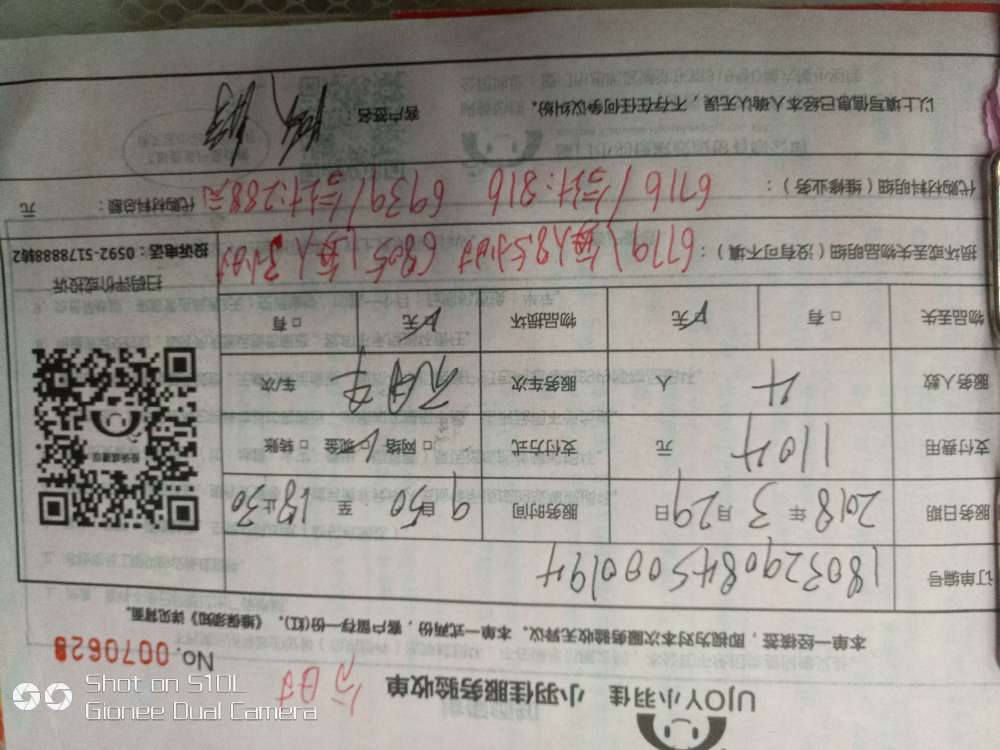 UJOY小羽佳 小羽佳服务验收单
No. 0070628
本单一经核签，即视为对本次服务验收无异议。本单一式两份，客户留存一份(红)。《维保须知》详见背面。
订单编号 1803290845000194
服务日期 2018 年 3 月 29 日 服务时间 9:50 至 18:30 止
支付费用 1104 元 支付方式 □ 网络 ☑ 现金 □ 转账
服务人数 4 人 服务车次 车次
物品丢失 □ 有 ☑ 无 物品损坏 ☑ 无 □ 有
扫码评价或投诉
投诉电话：0592-5178888转2
损坏或丢失物品明细（没有可不填）：6779 每人8.5小时 6805 每人3小时
代购材料明细（维修业务）： 6716 合计:816 6939 合计:288元 代购材料总额： 元
以上填写信息已经本人确认无误，不存在任何争议纠纷。 客户签名：
Shot on S10L
Gionee Dual Camera